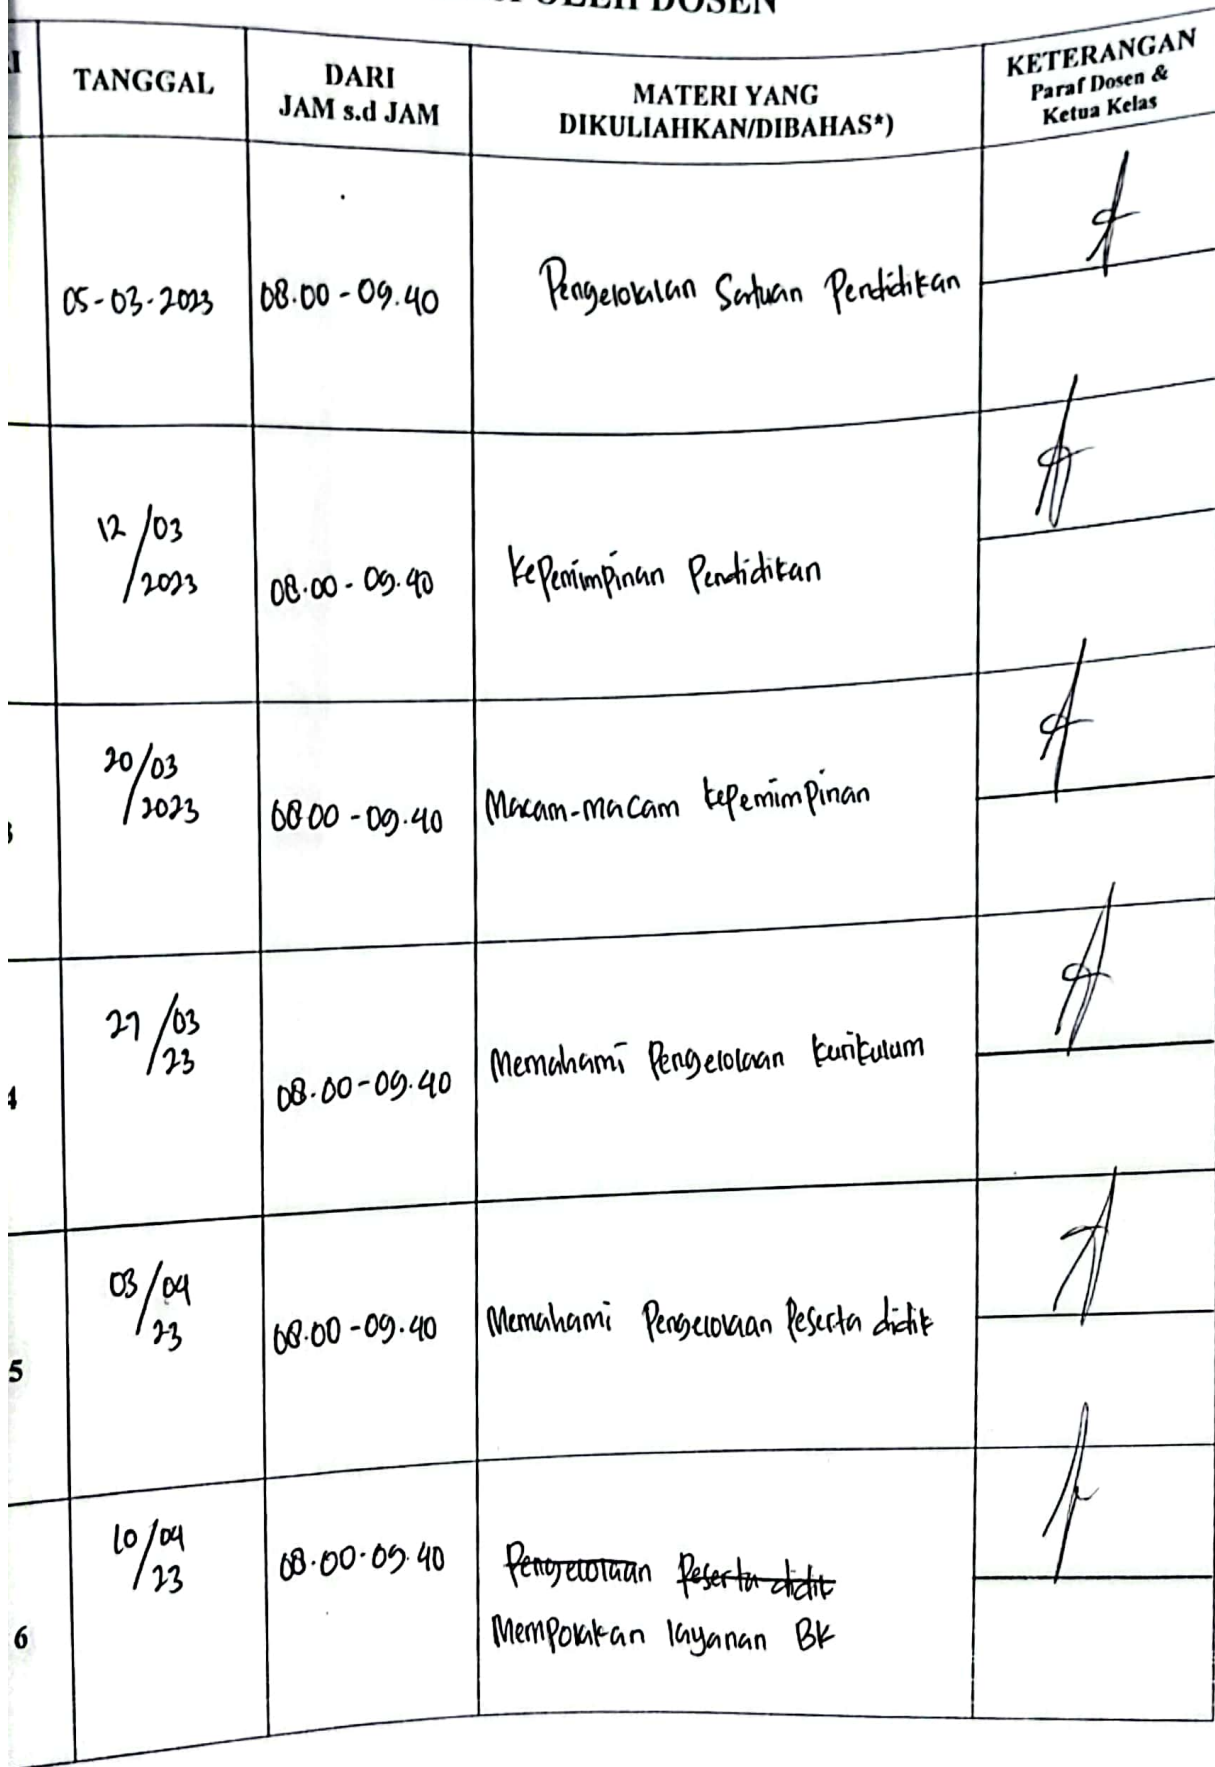 OLEH DOSEN
TANGGAL
DARI
JAM s.d JAM
MATERI YANG
DIKULIAHKAN/DIBAHAS*)
KETERANGAN
Paraf Dosen &
Ketua Kelas
05-03-2023 08.00 - 09.40 Pengelolaan Satuan Pendidikan
12/03
/2023
08.00 - 09.40 Kepemimpinan Pendidikan
20/03
/2023
08.00 - 09.40 Macam-macam kepemimpinan
27/03
/23
4
08.00 - 09.40 Memahami Pengelolaan kurikulum
03/04
/23
5
08.00 - 09.40 Memahami Pengelolaan Peserta didik
10/04
/23
6
08.00 - 09.40 Pengelolaan Peserta didik
Mempolakan layanan BK